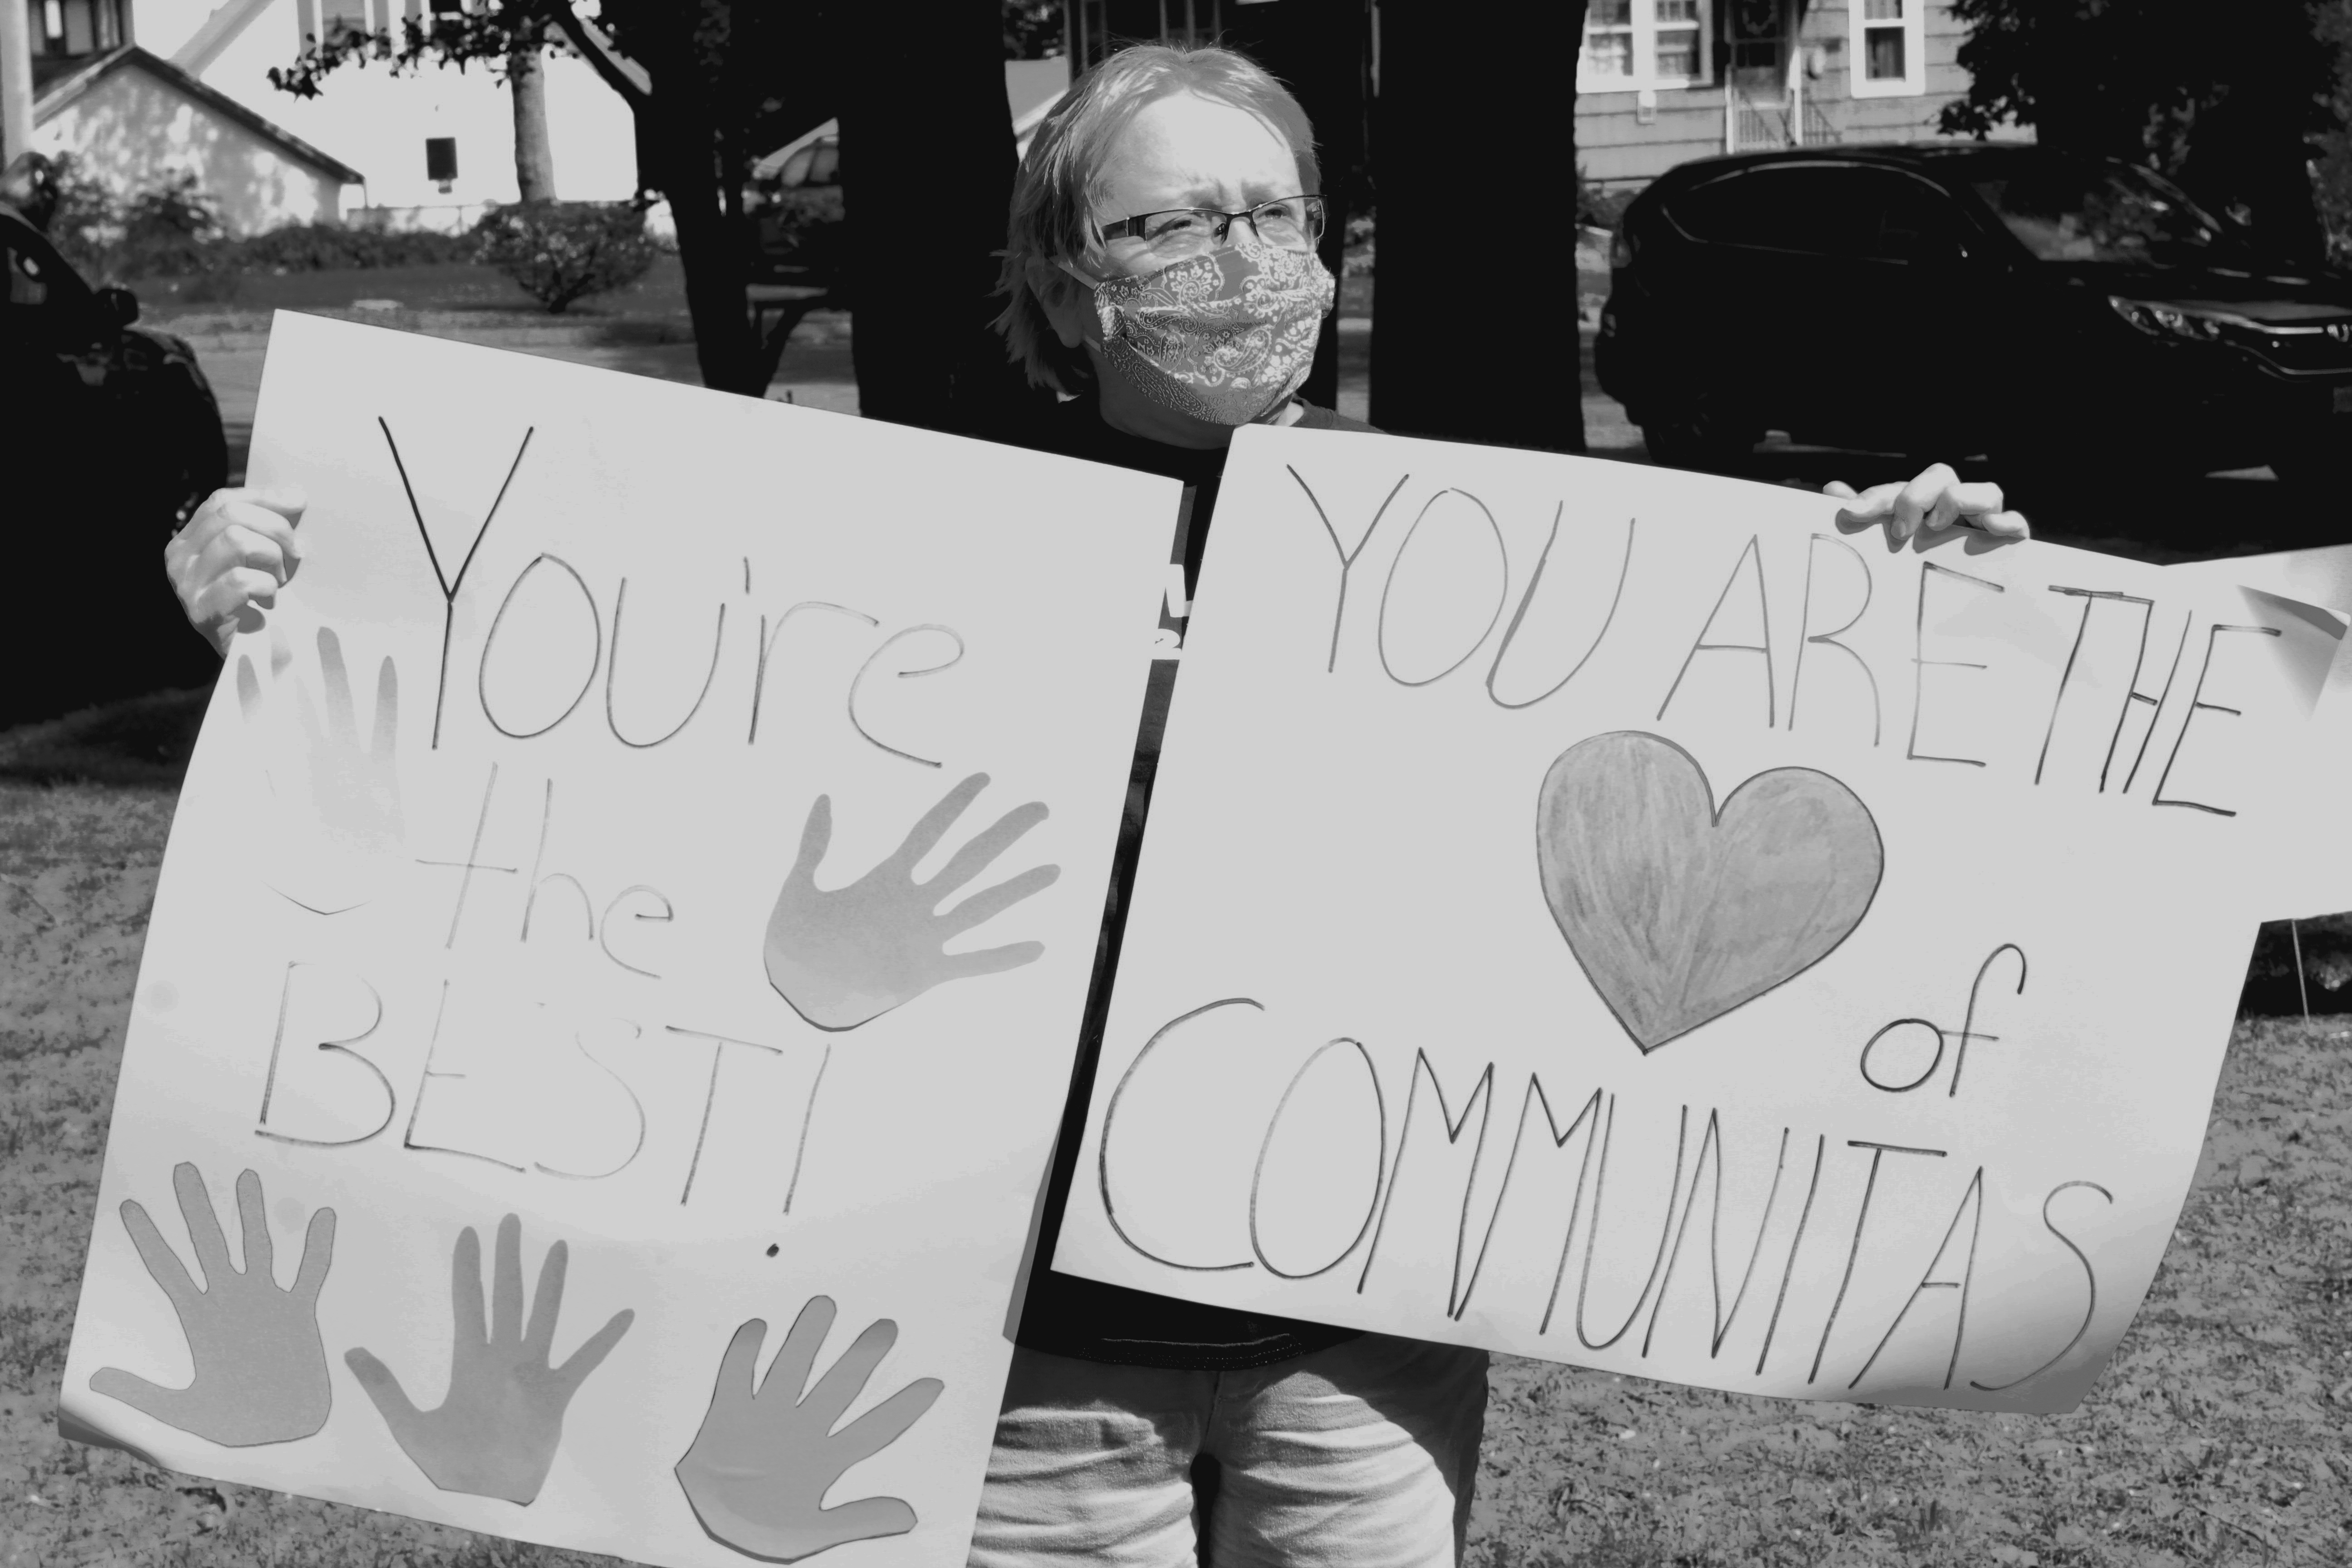 You're
the
BEST!
YOU ARE THE
of
COMMUNITAS